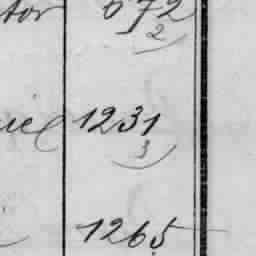 tor 672
2
1231
3
1265